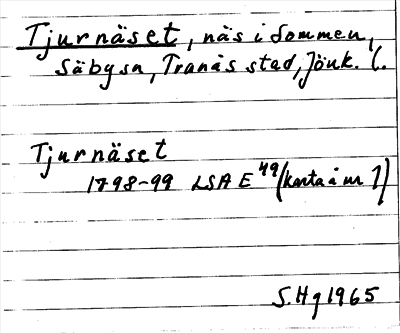 Tjurnäset, näs i Sommen,
Säby sn, Tranås stad, Jönk. l.
Tjurnäset
1798-99 LSA E 49 (karta å nr 1)
S. Hg 1965